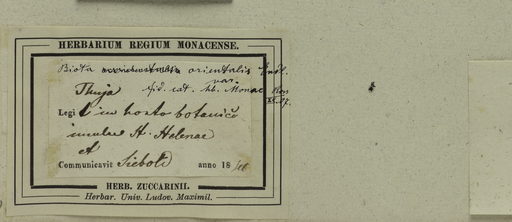 HERBARIUM REGIUM MONACENSE.
Biota orientalis Endl.
var.
Thuja fid. cat. hb. Monac
Legi in horto botanico
insulae St. Helenae
et
Communicavit Siebold anno 18
HERB. ZUCCARINII.
Herbar. Univ. Ludov. Maximil.